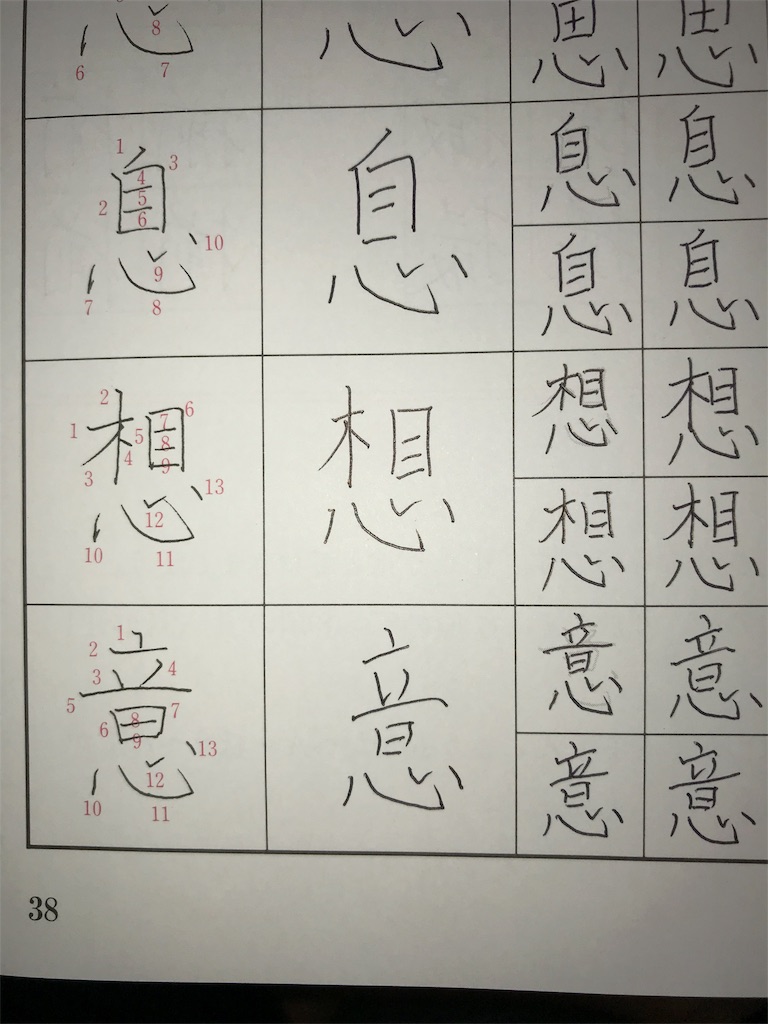 思 思 思 思
6 7 8
息 息 息 息
1 2 3 4 5 6 7 8 9 10
息 息
想 想 想 想
1 2 3 4 5 6 7 8 9 10 11 12 13
想 想
意 意 意 意
1 2 3 4 5 6 7 8 9 10 11 12 13
意 意
38